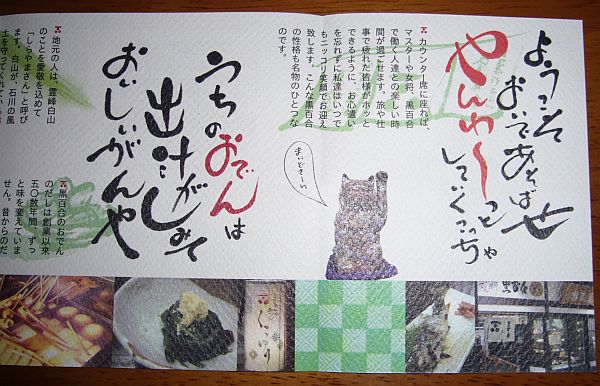 ようこそ
おいであそばせ
やんわ〜っと
していくこっちゃ
カウンター席に座れば、
マスターや女将、黒百合
で働く人達との楽しい時
間が過ごせます。旅や仕
事で疲れた皆様がホッと
できるように、お心遣い
を忘れずに私達はいつで
もニッコリ笑顔でお迎え
致します。こんな黒百合
の性格も名物のひとつな
のです。
まいどさーい
うちのおでんは
出汁がしみて
おいしいがんや
黒百合のおでん
のだしは創業以来
五〇数年間、ずっ
と味を変えていま
せん。昔からのだ
地元の人は、霊峰白山
のことを尊敬を込めて
「しらやまさん」と呼び
ます。白山が、石川の風
土を守ってくれ
黒百合